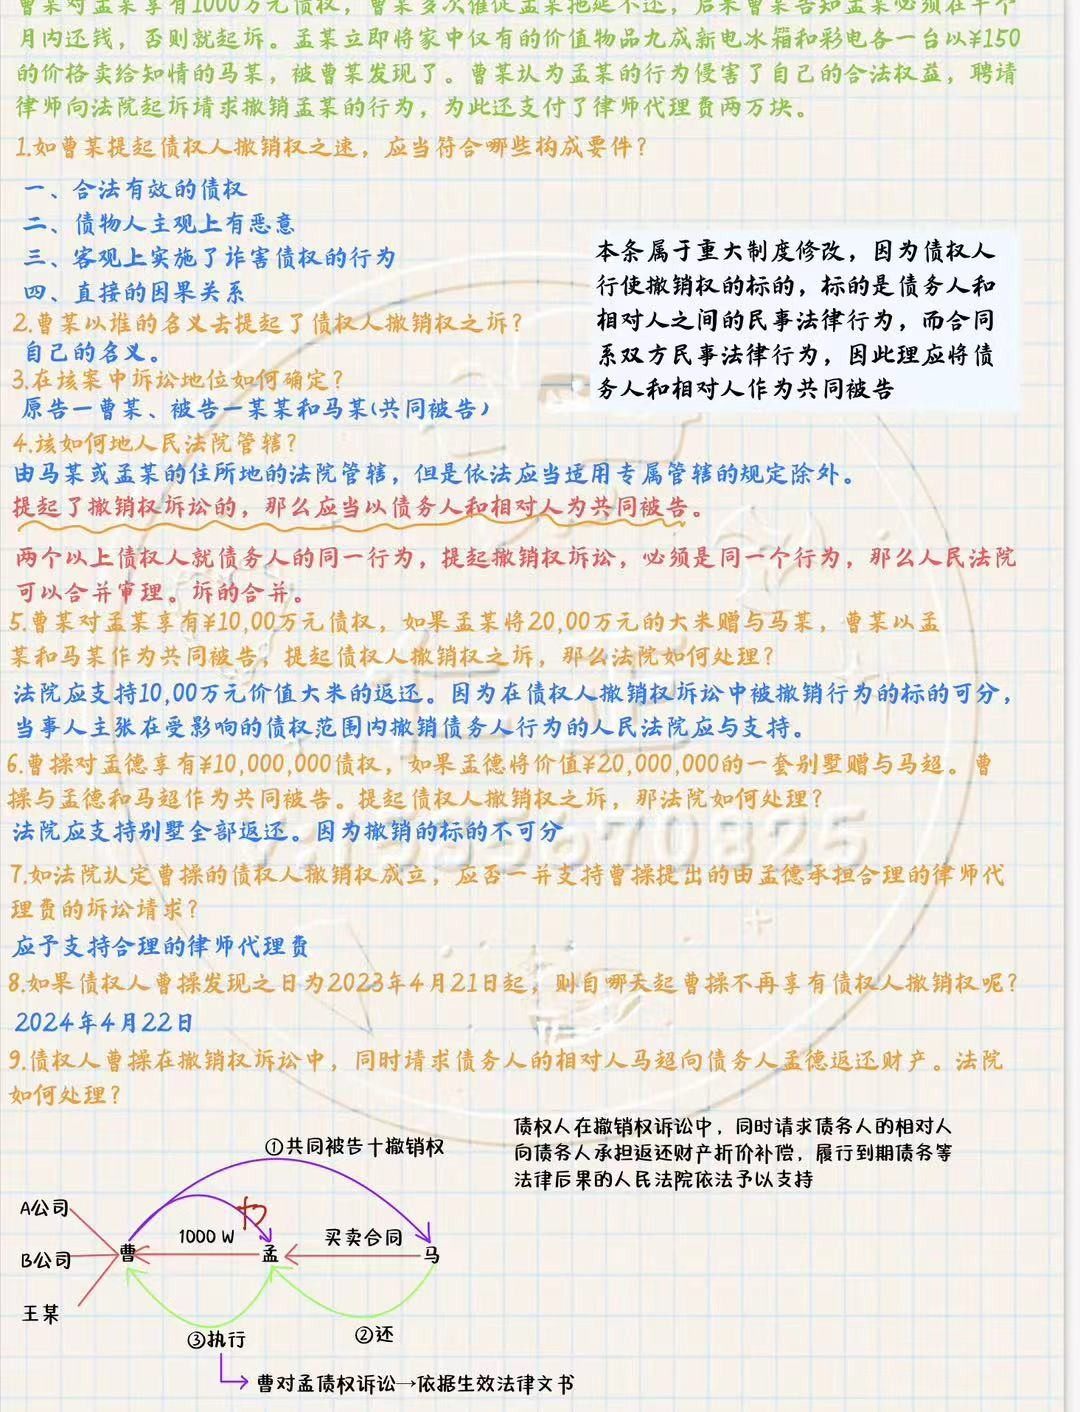 曹某对孟某享有1000万元债权，曹某多次催促孟某拖延不还，后来曹某告知孟某必须在半个
月内还钱，否则就起诉。孟某立即将家中仅有的价值物品九成新电冰箱和彩电各一台以¥150
的价格卖给知情的马某，被曹某发现了。曹某认为孟某的行为侵害了自己的合法权益，聘请
律师向法院起诉请求撤销孟某的行为，为此还支付了律师代理费两万块。
1.如曹某提起债权人撤销权之速，应当符合哪些构成要件？
一、合法有效的债权
二、债物人主观上有恶意
三、客观上实施了诈害债权的行为
四、直接的因果关系
本条属于重大制度修改，因为债权人
行使撤销权的标的，标的是债务人和
相对人之间的民事法律行为，而合同
系双方民事法律行为，因此理应将债
务人和相对人作为共同被告
2.曹某以堆的名义去提起了债权人撤销权之诉？
自己的名义。
3.在该案中诉讼地位如何确定？
原告一曹某、被告一某某和马某(共同被告)
4.该如何地人民法院管辖？
由马某或孟某的住所地的法院管辖，但是依法应当适用专属管辖的规定除外。
提起了撤销权诉讼的，那么应当以债务人和相对人为共同被告。
两个以上债权人就债务人的同一行为，提起撤销权诉讼，必须是同一个行为，那么人民法院
可以合并审理。诉的合并。
5.曹某对孟某享有¥10,00万元债权，如果孟某将20,00万元的大米赠与马某，曹某以孟
某和马某作为共同被告，提起债权人撤销权之诉，那么法院如何处理？
法院应支持10,00万元价值大米的返还。因为在债权人撤销权诉讼中被撤销行为的标的可分，
当事人主张在受影响的债权范围内撤销债务人行为的人民法院应与支持。
6.曹操对孟德享有¥10,000,000债权，如果孟德将价值¥20,000,000的一套别墅赠与马超。曹
操与孟德和马超作为共同被告。提起债权人撤销权之诉，那法院如何处理？
法院应支持别墅全部返还。因为撤销的标的不可分
7.如法院认定曹操的债权人撤销权成立，应否一并支持曹操提出的由孟德承担合理的律师代
理费的诉讼请求？
应予支持合理的律师代理费
8.如果债权人曹操发现之日为2023年4月21日起，则自哪天起曹操不再享有债权人撤销权呢？
2024年4月22日
9.债权人曹操在撤销权诉讼中，同时请求债务人的相对人马超向债务人孟德返还财产。法院
如何处理？
债权人在撤销权诉讼中，同时请求债务人的相对人
向债务人承担返还财产折价补偿，履行到期债务等
法律后果的人民法院依法予以支持
①共同被告十撤销权
A公司
1000 W
买卖合同
B公司
曹
孟
马
王某
③执行
②还
曹对孟债权诉讼→依据生效法律文书